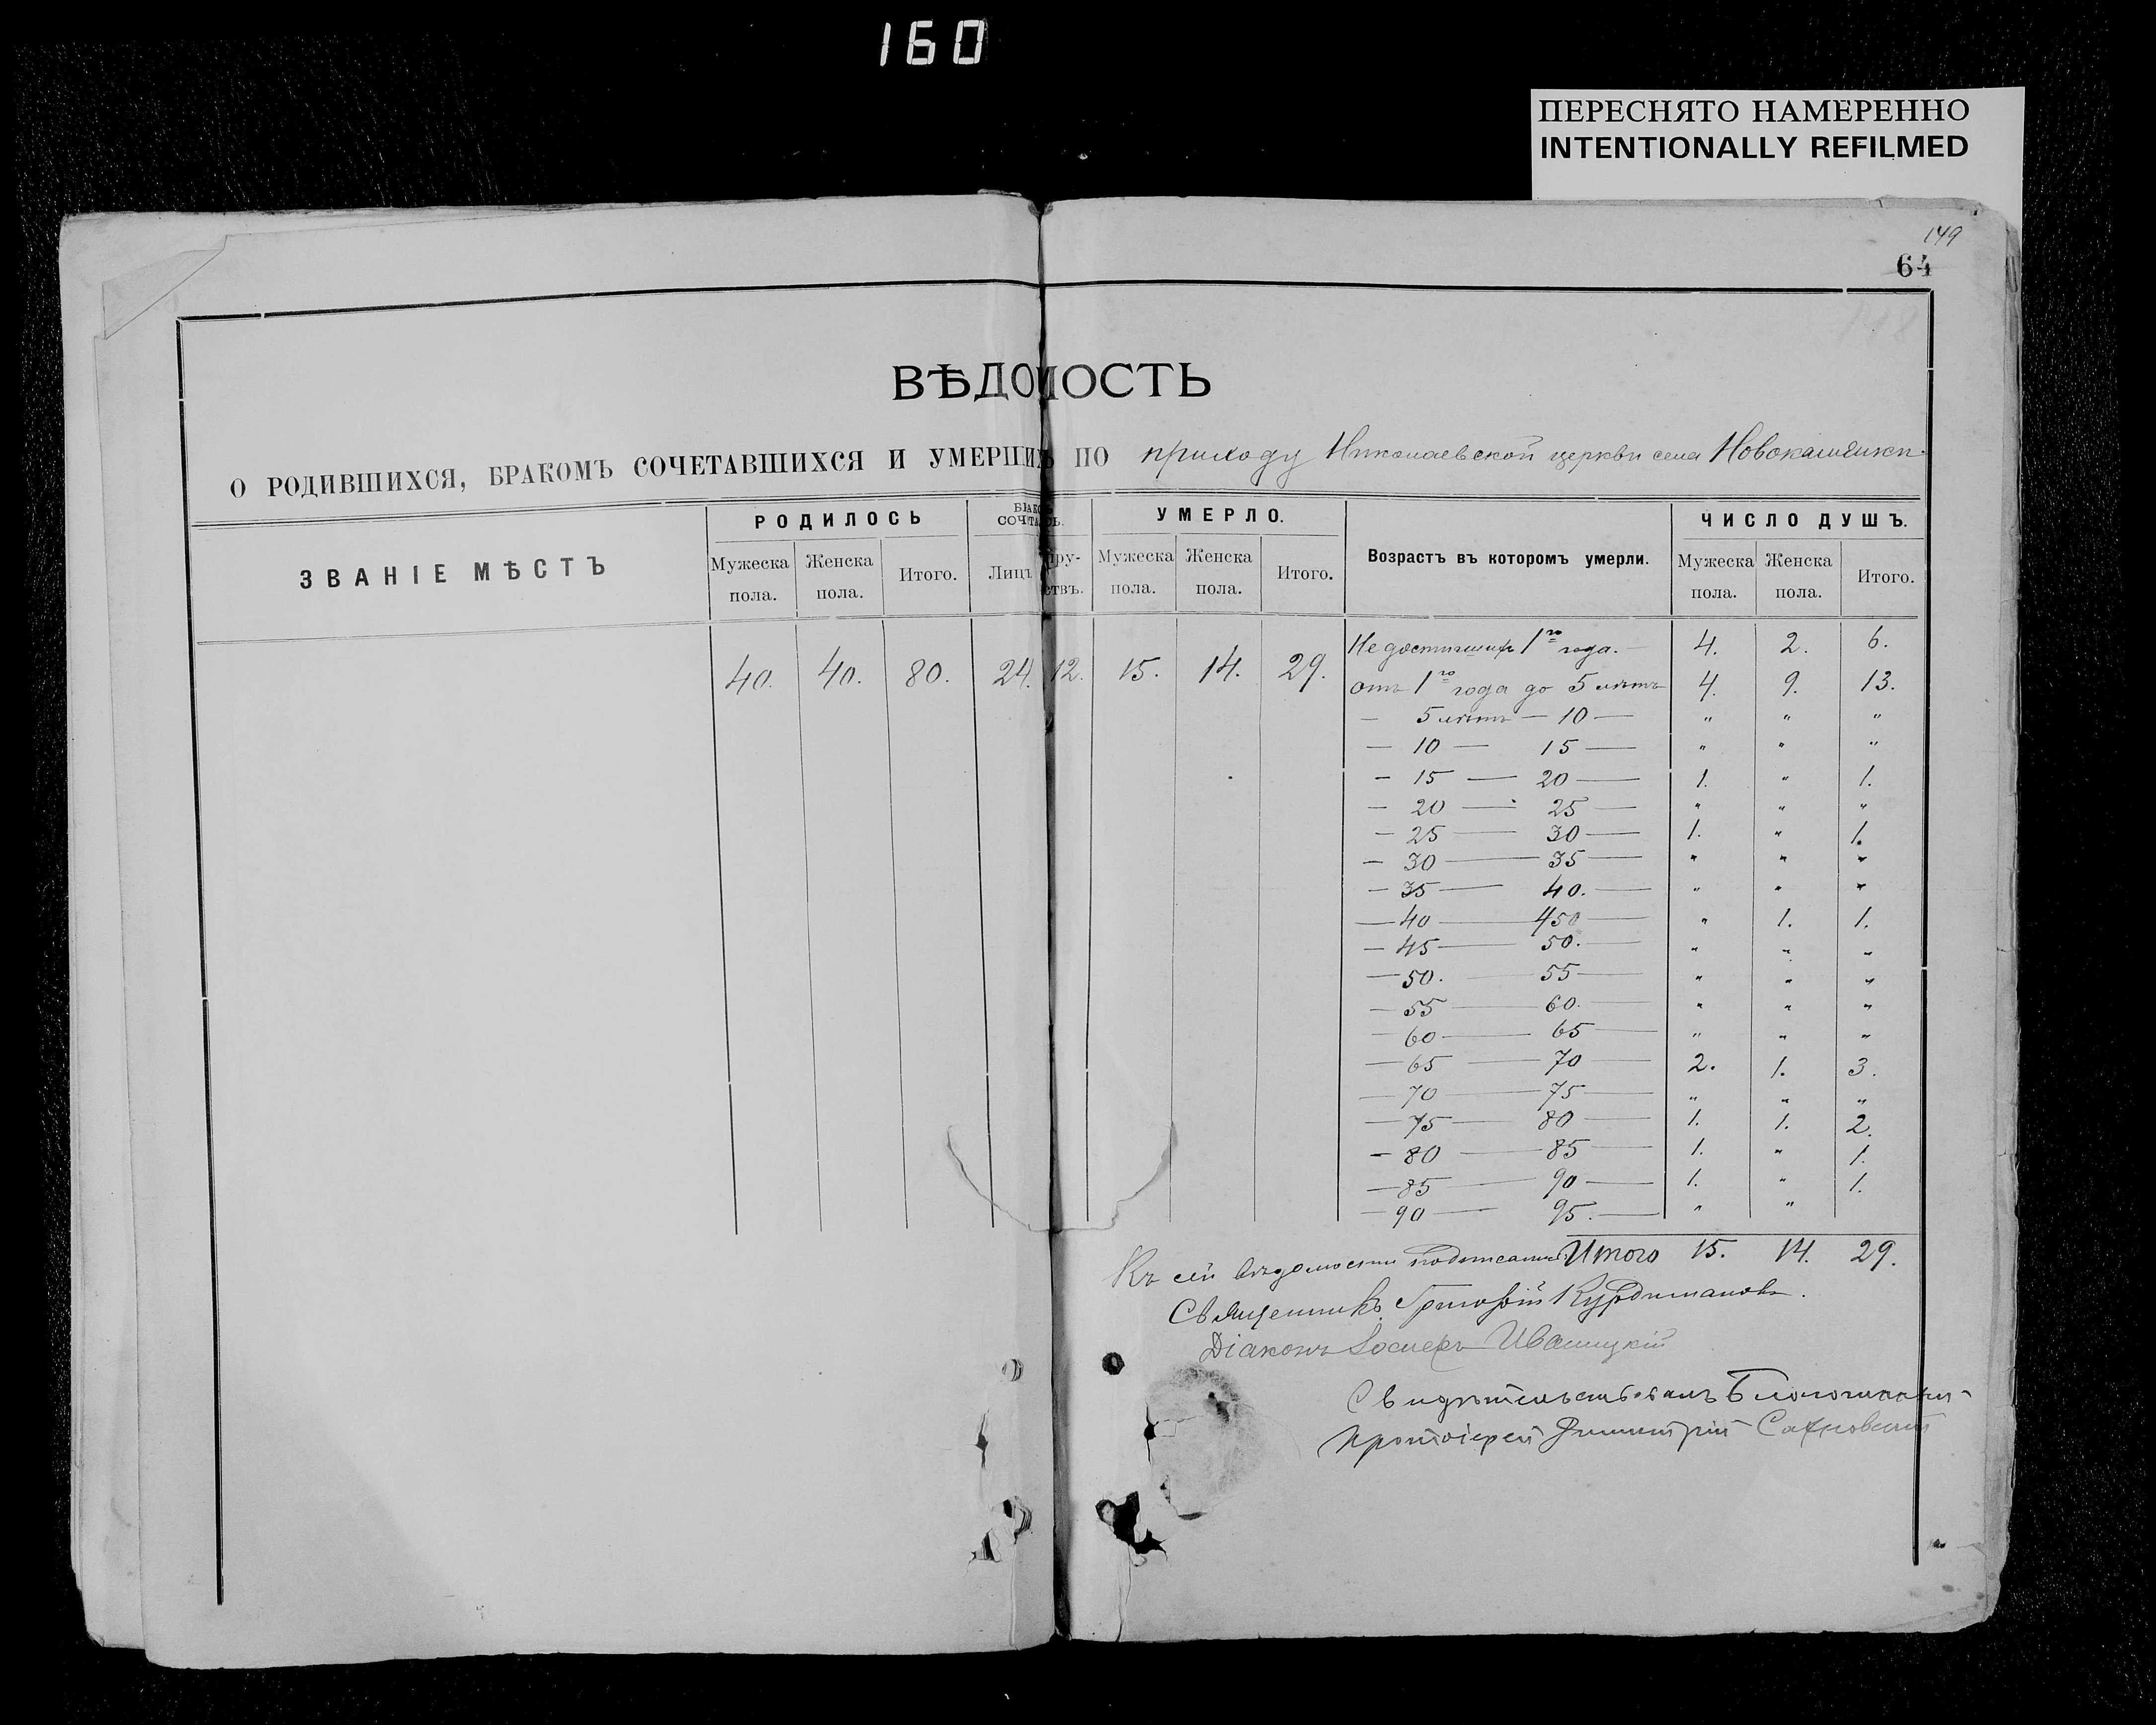 160
ПЕРЕСНЯТО НАМЕРЕННО
INTENTIONALLY REFILMED
149
64
ВѢДОМОСТЬ
О РОДИВШИХСЯ, БРАКОМЪ СОЧЕТАВШИХСЯ И УМЕРШИХЪ ПО приходу Николаевской церкви села
ЗВАНІЕ МѢСТЪ РОДИЛОСЬ УМЕРЛО. Возрастъ въ которомъ умерли. ЧИСЛО ДУШЪ.
Мужеска пола. Женска пола. Итого. Лицъ Мужеска пола. Женска пола. Итого. Мужеска пола. Женска пола. Итого.
40. 40. 80. 24. 12. 15. 14. 29.
Не достигшихъ 1го года. — 4. 2. 6.
отъ 1го года до 5 лѣтъ 4. 9. 13.
— 5 лѣтъ — 10 — " " "
— 10 — 15 — " " "
— 15 — 20 — 1. " 1.
— 20 — 25 — " " "
— 25 — 30 — 1. " 1.
— 30 — 35 — " " "
— 35 — 40. — " " "
— 40 — 450 — " 1. 1.
— 45 — 50. — " " "
— 50. — 55 — " " "
— 55 — 60. — " " "
— 60 — 65 — " " "
— 65 — 70 — 2. 1. 3.
— 70 — 75 — " " "
— 75 — 80 — 1. 1. 2.
— 80 — 85 — 1. " 1.
— 85 — 90 — 1. " 1.
— 90 — 95. — " "
Итого 15. 14. 29.
Къ сей вѣдомости подписались
Священникъ Григорій
Діаконъ Іосифъ Иваницкій
Свидѣтельствовалъ Благочинный
Протоіерей Димитрій Сахновскій